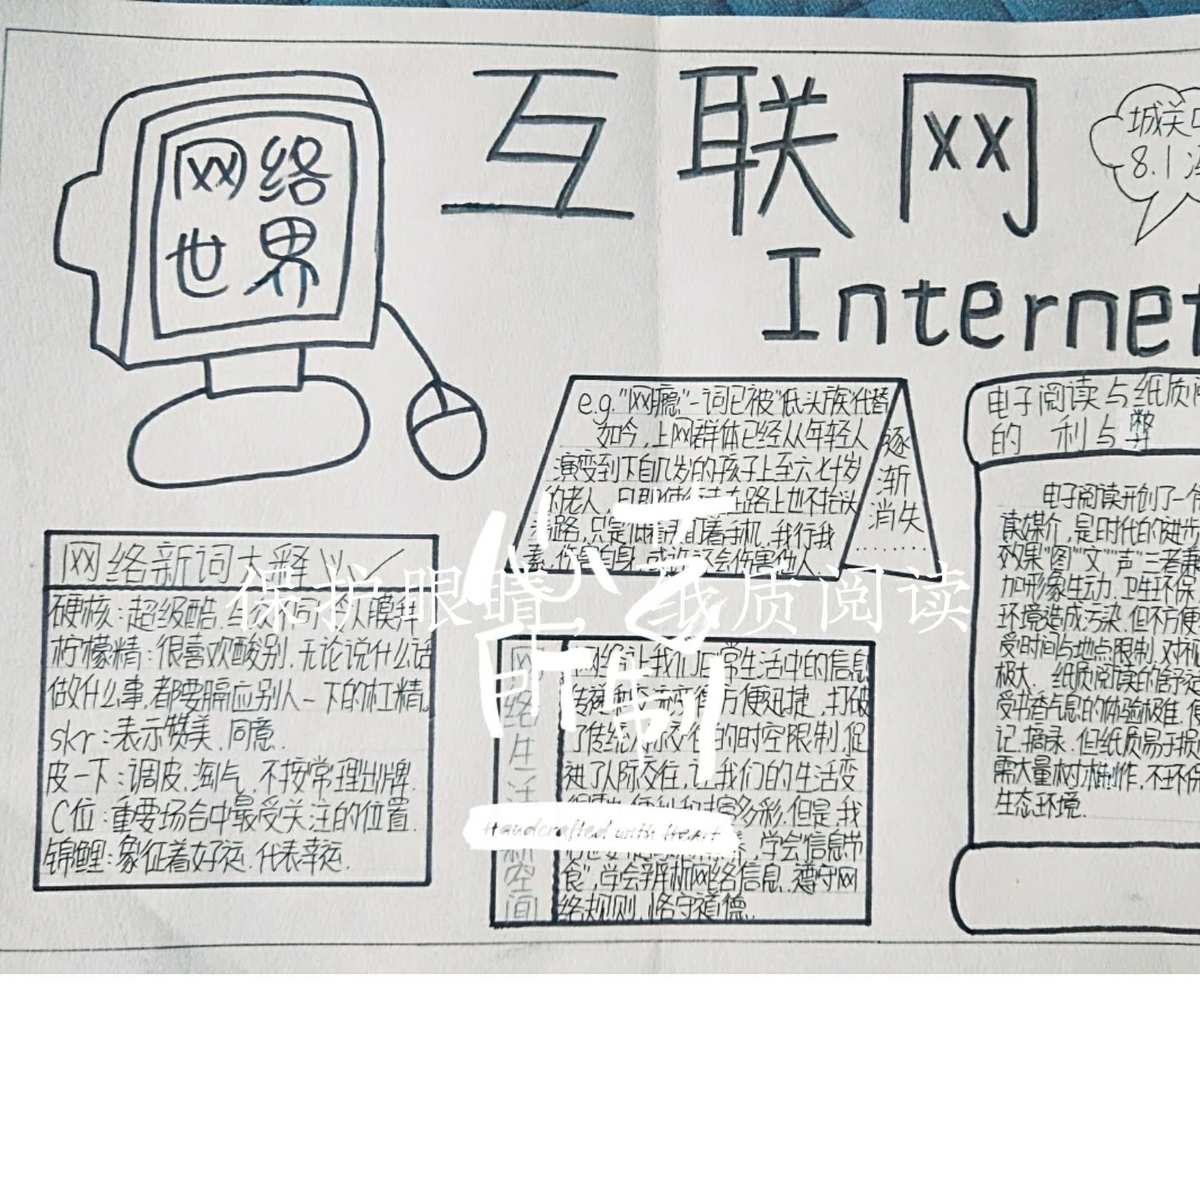 互联网
Internet
网络
世界
城关
8.1
e.g."网瘾"-词已被"低头族"代替
如今,上网群体已经从年轻人
演变到下自几岁的孩子上至六七十岁
的老人,路上也不抬头
看路,只是看着手机,我行我
素,伤害自身,或许还会伤害他人.
逐
渐
消失
……
网络新词大释义
硬核:超级酷,令人膜拜
柠檬精:很喜欢酸别,无论说什么话
做什么事,都要膈应别人一下的杠精.
skr:表示赞美,同意.
皮一下:调皮,淘气,不按常理出牌.
C位:重要场合中最受关注的位置.
锦鲤:象征着好运.代表幸运.
保护眼睛 纸质阅读
Handcrafted with Heart
网络生活新空间
网络让我们日常生活中的信息
传递和交流变得方便迅捷,打破
了传统人际交往的时空限制,促
进了人际交往,让我们的生活变
得更加便利和丰富多彩.但是,我
学会"信息节
食",学会辨析网络信息,遵守网
络规则,恪守道德.
电子阅读与纸质
的 利与弊
电子阅读开创了一
读媒介,是时代的进步
效果"图""文""声"三者兼
加形象生动.卫生环保
环境造成污染.但不方便
受时间与地点限制.对
极大. 纸质阅读的舒适
受书香气息的体验极佳.便
记,摘录.但纸质易于损
需大量树木制作,不环保
生态环境.